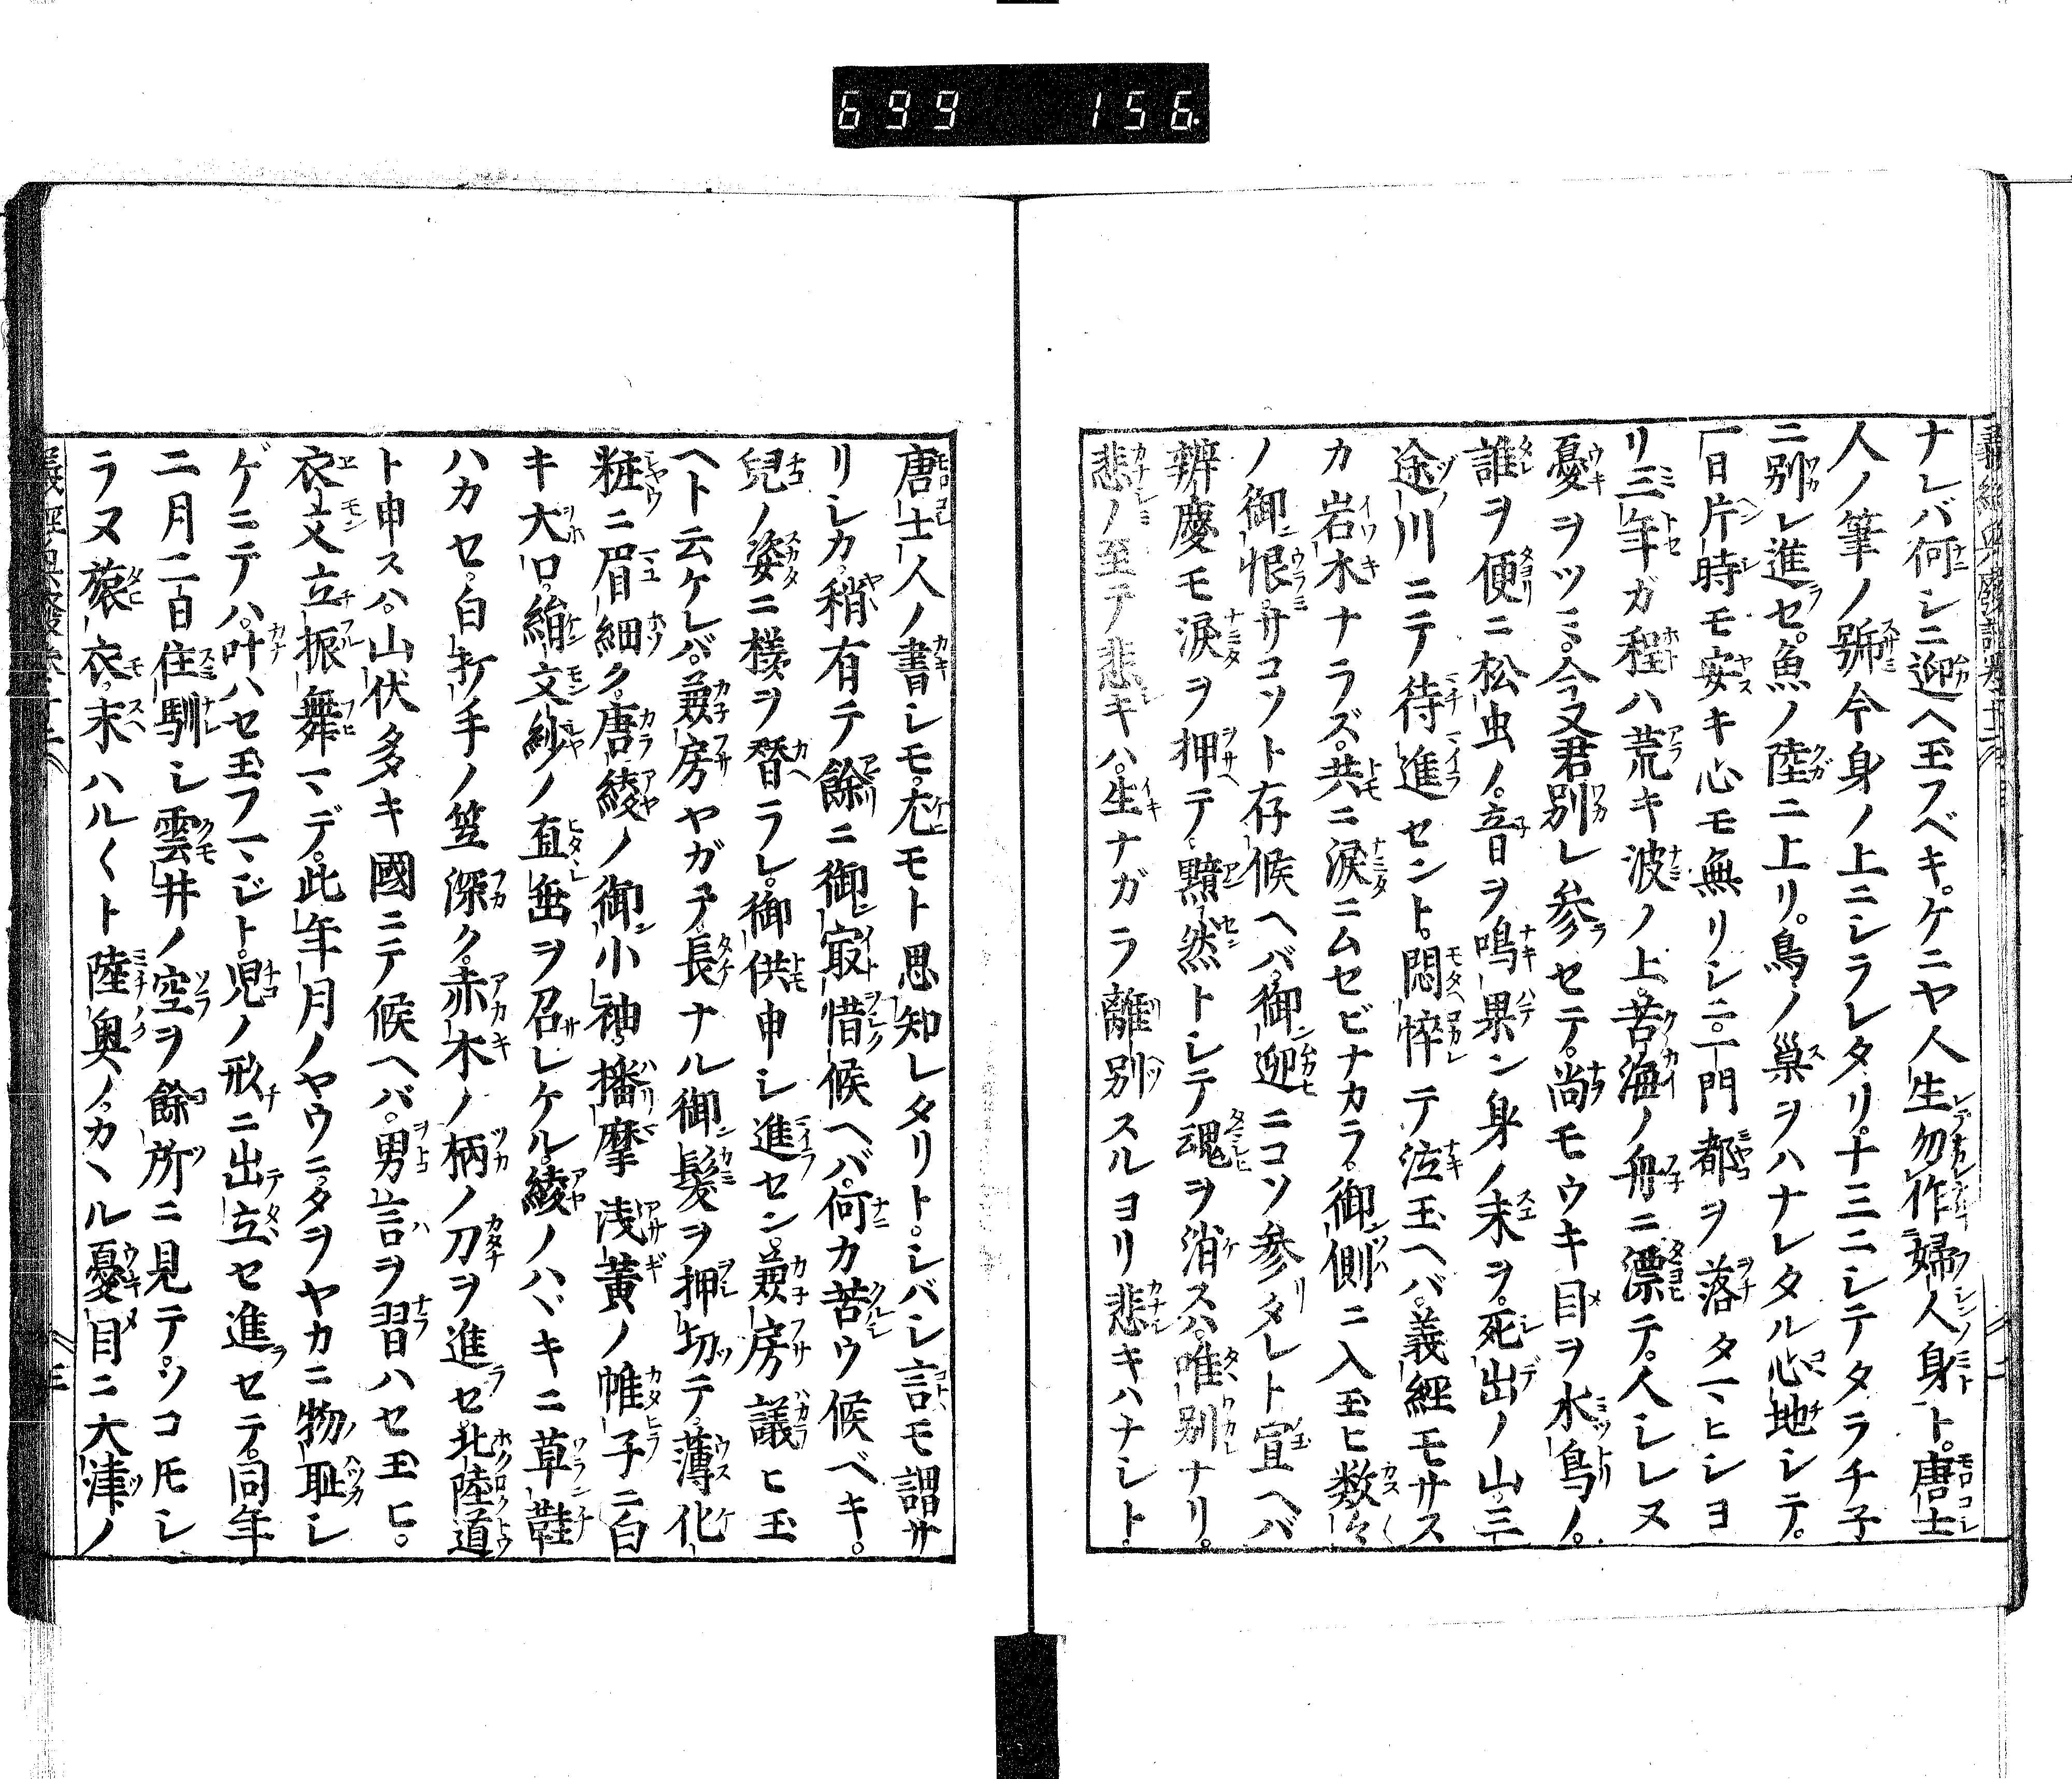 699 156
ナレバ何シニ迎ヘ玉フベキ。ケニヤ人生勿作婦人身ト。唐士
人ノ筆ノ號今身ノ上ニシラレタリ。十三ニシテタラチ子
ニ別レ進セ。魚ノ陸ニ上リ。鳥ノ巣ヲハナレタル心地シテ。
一日片時モ安キ心モ無リシニ。一門都ヲ落タマヒシヨ
リ三年ガ程ハ荒キ波ノ上。苦海ノ舟ニ漂テ。人シレヌ
憂ヲツミ。今又君別レ参セテ。尚モウキ目ヲ水鳥ノ。
誰ヲ便ニ松虫ノ。音ヲ鳴果ン身ノ末ヲ。死出ノ山三
途ノ川ニテ待進セント。悶悴テ泣玉ヘバ。義經モサス
カ岩木ナラズ。共ニ涙ニムセビナカラ。御側ニ入玉ヒ数々
ノ御恨。サコソト存候ヘバ。御迎ニコソ参タレト宣ヘバ
辨慶モ涙ヲ押テ。黯然トシテ魂ヲ消スハ。唯別ナリ。
悲ノ至テ悲キハ。生ナガラ離別スルヨリ悲キハナシト。
唐士人ノ書シモ。尤モト思知レタリト。シバシ言モ謂サ
リシカ。稍有テ餘ニ御寂惜候ヘバ。何カ苦ウ候ベキ。
兒ノ姿ニ様ヲ替ラレ。御供申シ進セン。兼房議ヒ玉
ヘト云ケレバ。兼房ヤガテ。長ナル御髪ヲ押切テ。薄化
粧ニ眉細ク。唐綾ノ御小袖。播摩浅黄ノ帷子ニ白
キ大口。絹文紗ノ直垂ヲ召レケル。綾ノハヾキニ草鞋
ハカセ。白キ打手ノ笠深ク。赤木ノ柄ノ刀ヲ進セ。北陸道
ト申スハ。山伏多キ國ニテ候ヘバ。男言ヲ習ハセ玉ヒ。
衣文立振舞マデ。此年月ノヤウニ。タヲヤカニ物耻シ
ゲニテハ。叶ハセ玉フマジト。児ノ形ニ出立セ進セテ。同年
二月二日住馴シ雲井ノ空ヲ餘所ニ見テ。ソコトモシ
ラヌ旅衣。末ハル〲ト陸奥ノ。カヽル憂目ニ大津ノ